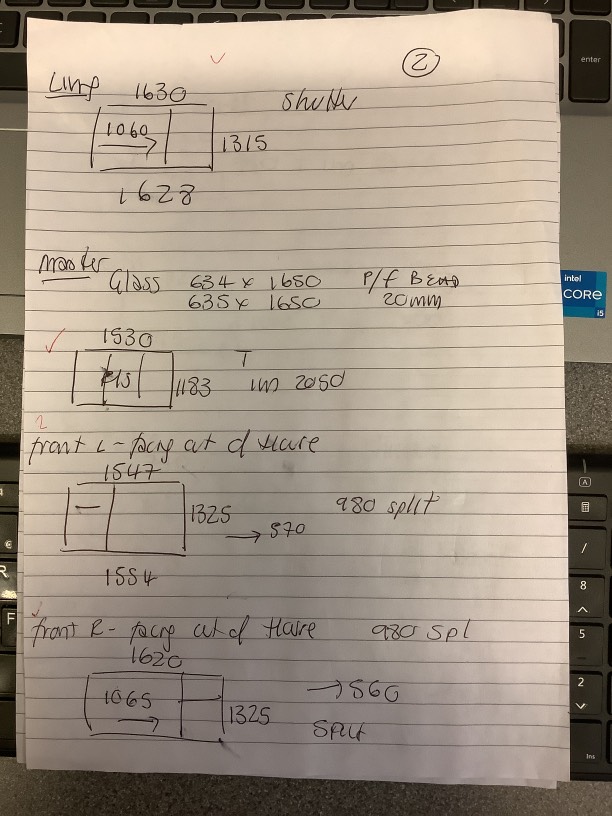 2
Living
1630
Shutter
1060
1315
1628
Master
Glass 634 x 1650 P/f BEAD
635 x 1650 20mm
1530
1183
T
2050
front L - facing out of House
1547
1325
980 split
→ 570
1554
front R - facing out of House 980 Spl
1620
1065
1325
→ 560
Split
enter
intel
CORE
i5
A
/
8
5
2
Ins
€
R
F